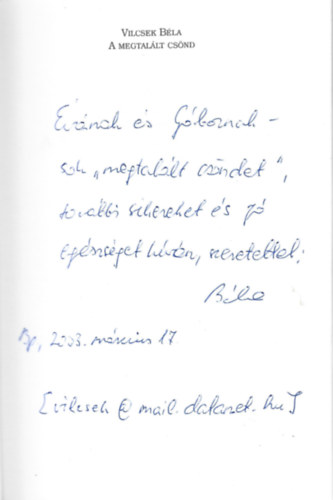 VILCSEK BÉLA
A MEGTALÁLT CSÖND
Évának és Gábornak –
sok „megtalált csöndet",
további sikereket és jó
egészséget kíván, szeretettel:
Béla
Bp, 2003. március 17
[vilcsek @ mail.datanet.hu]